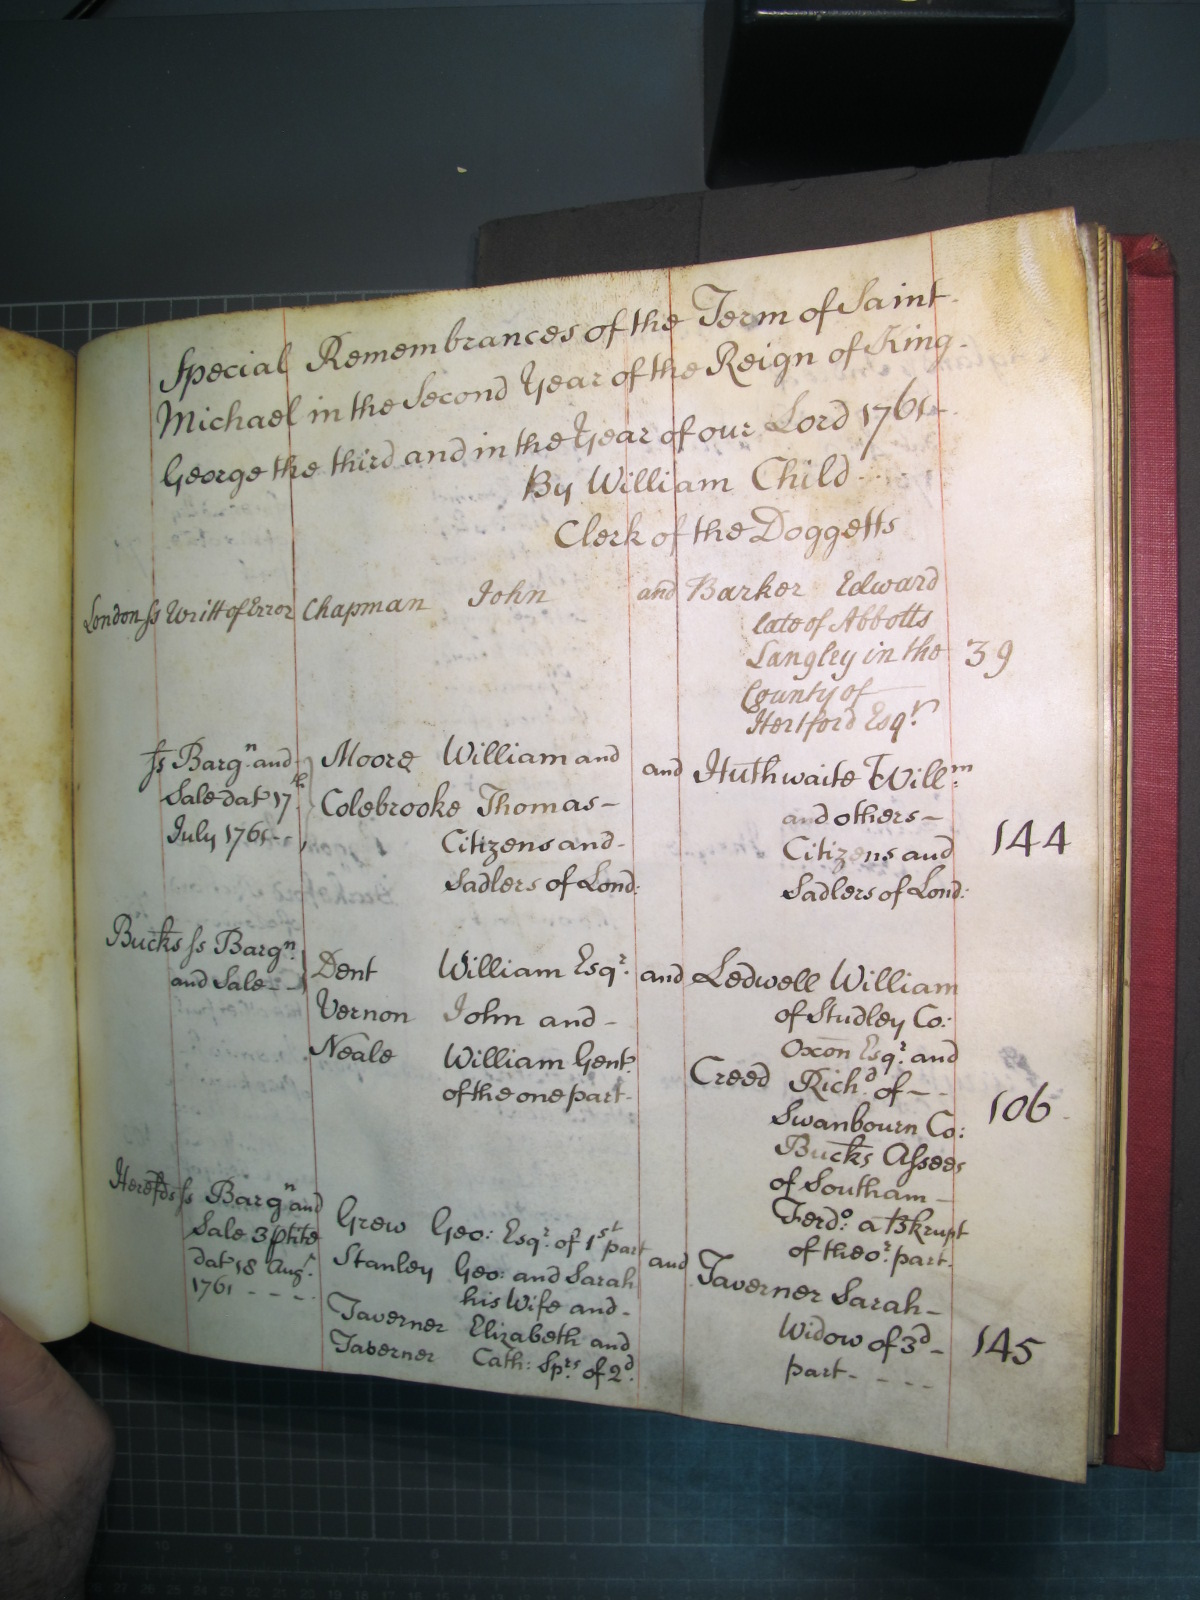 Special Remembrances of the Term of Saint
Michael in the Second Year of the Reign of King
George the third and in the Year of our Lord 1761
By William Child
Clerk of the Doggetts
London ss Writt of Error Chapman John and Barker Edward
late of Abbotts
Langley in the 39
County of
Hertford Esqr.
ss Bargn. and Moore William and and Huthwaite Willm:
Sale dat 17th Colebrooke Thomas and others
July 1761 Citizens and Citizens and 144
Sadlers of Lond: Sadlers of Lond:
Bucks ss Bargn.
and Sale Dent William Esqr. and Ledwell William
Vernon John and of Studley Co:
Neale William Gent. Oxon Esqr. and
of the one part Creed Richd. of 106
Swanbourn Co:
Bucks Assees
of Southam
Ferdo: a Bkrupt
of the or. part.
Herefds ss Bargn and Grew Geo: Esqr. of 1st part and Taverner Sarah
Sale 3ptite Stanley Geo: and Sarah Widow of 3d
dat 18 Augt. his Wife and part 145
1761 Taverner Elizabeth and
Taverner Cath: Sprs. of 2d.